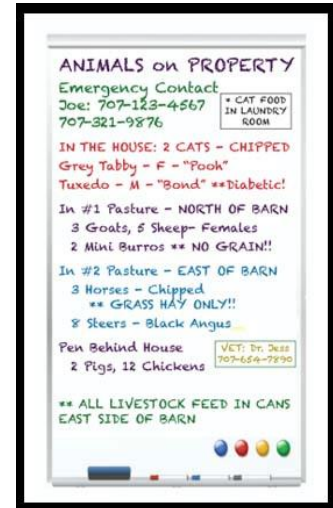 ANIMALS on PROPERTY
Emergency Contact
Joe: 707-123-4567
707-321-9876
* CAT FOOD
IN LAUNDRY
ROOM
IN THE HOUSE: 2 CATS - CHIPPED
Grey Tabby - F - "Pooh"
Tuxedo - M - "Bond" **Diabetic!
In #1 Pasture - NORTH OF BARN
3 Goats, 5 Sheep- Females
2 Mini Burros ** NO GRAIN!!
In #2 Pasture - EAST OF BARN
3 Horses - Chipped
** GRASS HAY ONLY!!
8 Steers - Black Angus
Pen Behind House
2 Pigs, 12 Chickens
VET: Dr. Jess
707-654-7890
** ALL LIVESTOCK FEED IN CANS
EAST SIDE OF BARN